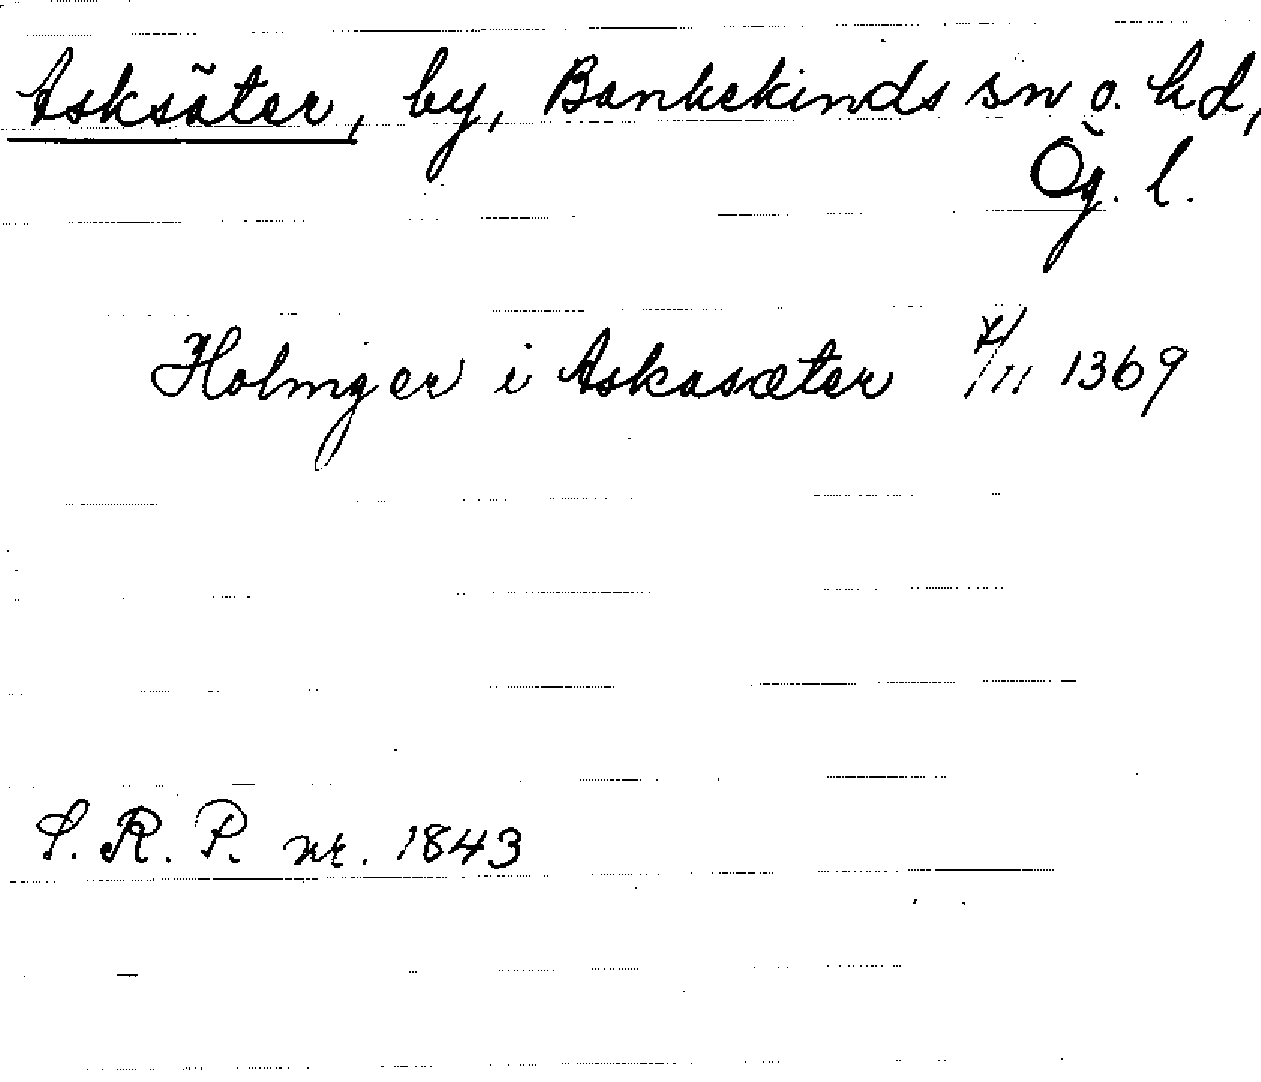 Asksäter, by, Bankekinds sn o. hd,
Ög. l.
Holmger i Askasæter 4/11 1369
S. R. P. nr. 1843